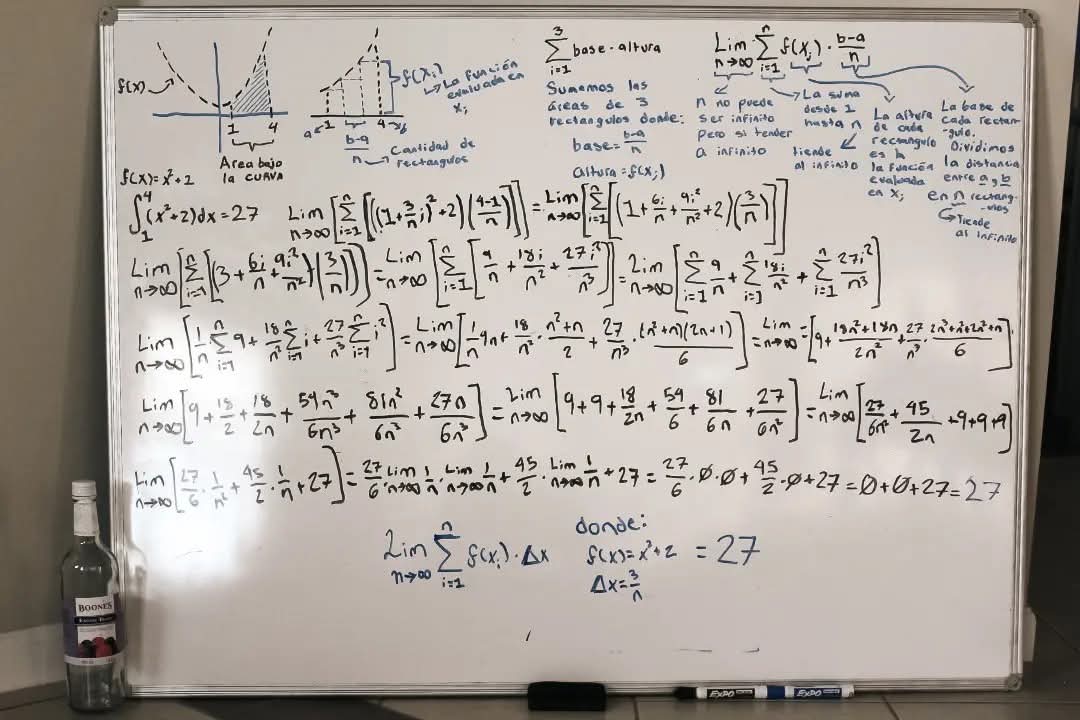 f(x)
1 4
Área bajo
la curva
f(x)=x²+2
f(xᵢ)
La función
evaluada en
xᵢ
a 1 4 b
b-a
n
Cantidad de
rectangulos
3
∑ base · altura
i=1
Sumamos las
áreas de 3
rectangulos donde:
base= b-a/n
altura = f(xᵢ)
Lim n→∞ ∑ i=1 n f(xᵢ) · b-a/n
n no puede
ser infinito
pero si tender
a infinito
La suma
desde 1
hasta n
tiende
al infinito
La altura
de cada
rectangulo
es la
función
evaluada
en xᵢ
La base de
cada rectan-
gulo.
Dividimos
la distancia
entre a y b
en n rectang-
ulos
Tiende
al infinito
∫₁⁴(x²+2)dx=27 Lim n→∞ [∑ i=1 n [((1+3/n i)²+2)(4-1/n)]] = Lim n→∞ [∑ i=1 n [(1+6i/n+9i²/n²+2)(3/n)]]
Lim n→∞ [∑ i=1 n [(3+6i/n+9i²/n²)(3/n)]] = Lim n→∞ [∑ i=1 n [9/n+18i/n²+27i²/n³]] = Lim n→∞ [∑ i=1 n 9/n + ∑ i=1 n 18i/n² + ∑ i=1 n 27i²/n³]
Lim n→∞ [1/n ∑ i=1 n 9 + 18/n² ∑ i=1 n i + 27/n³ ∑ i=1 n i²] = Lim n→∞ [1/n 9n + 18/n² · n²+n/2 + 27/n³ · (n²+n)(2n+1)/6] = Lim n→∞ [9+18n²+18n/2n²+27/n³ · 2n³+n²+2n²+n/6]
Lim n→∞ [9+18/2+18/2n+54n³/6n³+81n²/6n³+27n/6n³] = Lim n→∞ [9+9+18/2n+54/6+81/6n+27/6n²] = Lim n→∞ [27/6n²+45/2n+9+9+9]
Lim n→∞ [27/6 · 1/n² + 45/2 · 1/n + 27] = 27/6 · Lim n→∞ 1/n · Lim n→∞ 1/n + 45/2 · Lim n→∞ 1/n + 27 = 27/6 · 0 · 0 + 45/2 · 0 + 27 = 0+0+27 = 27
Lim n→∞ ∑ i=1 n f(xᵢ) · Δx donde: f(x)=x²+2 = 27
Δx=3/n
BOONE'S
EXPO
EXPO